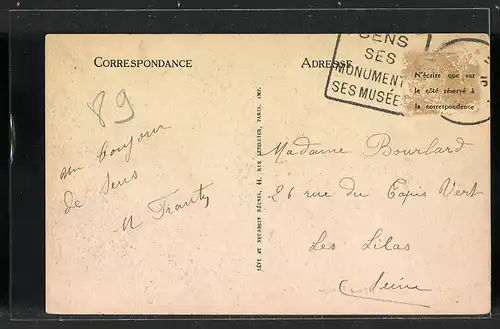 CORRESPONDANCE
ADRESSE
SENS
SES
MONUMENT
SES MUSÉE
N'écrire que sur
le côté réservé à
la correspondance
89
un bonjour
de Sens
M Frantz
LÉVY ET NEURDEIN RÉUNIS, 44, RUE LETELLIER, PARIS. IMP.
Madame Bourlard
26 rue du Tapis Vert
Les Lilas
Seine